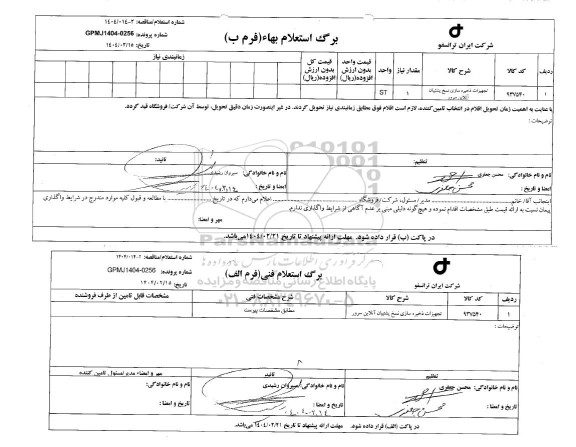 شماره استعلام/مناقصه: ۱۴۰۴-۰۱۴-۲
برگ استعلام بهاء(فرم ب)
شماره پرونده: GPMJ1404-0256
شرکت ایران ترانسفو
تاریخ: ۱۴۰۴/۰۲/۱۵
ردیف کد کالا شرح کالا مقدار نیاز واحد قیمت واحد بدون ارزش افزوده(ریال) قیمت کل بدون ارزش افزوده(ریال) زمانبندی نیاز
۱ ۹۳۷۵۴۰ تجهیزات ذخیره سازی نسخ پشتیبان آنلاین سرور ۱ ST
با عنایت به اهمیت زمان تحویل اقلام در انتخاب تامین کننده، لازم است اقلام فوق مطابق زمانبندی نیاز تحویل گردند. در غیر اینصورت زمان دقیق تحویل، توسط آن شرکت/ فروشگاه قید گردد.
توضیحات :
تنظیم: تائید:
نام و نام خانوادگی: محسن جعفری نام و نام خانوادگی: سیروان رشیدی
امضا و تاریخ : امضا و تاریخ :
اینجانب آقا/ خانم ........ مدیر / مسئول، شرکت / فروشگاه ........ اعلام می‌دارم که در تاریخ ........ با مطالعه و قبول کلیه موارد مندرج در شرایط واگذاری
پیمان نسبت به ارائه قیمت طبق مشخصات اقدام نموده و هیچ گونه دلیلی مبنی بر عدم آگاهی از شرایط واگذاری ندارم.
مهر و امضاء :
در پاکت (ب) قرار داده شود. مهلت ارائه پیشنهاد تا تاریخ ۱۴۰۴/۰۲/۲۱ می‌باشد.
ParsNamadData
پایگاه اطلاع رسانی مناقصه و مزایده
۰۲۱-۸۸۳۴۹۶۷۰-۵
برگ استعلام فنی(فرم الف)
شماره پرونده: GPMJ1404-0256
شرکت ایران ترانسفو
تاریخ: ۱۴۰۴/۰۲/۱۵
ردیف کد کالا شرح کالا شرح مشخصات فنی مشخصات قابل تامین از طرف فروشنده
۱ ۹۳۷۵۴۰ تجهیزات ذخیره سازی نسخ پشتیبان آنلاین سرور مطابق مشخصات پیوست
توضیحات :
تنظیم تائید مهر و امضاء مدیر/مسئول تامین کننده
نام و نام خانوادگی: محسن جعفری نام و نام خانوادگی: سیروان رشیدی نام و نام خانوادگی:
تاریخ و امضاء : تاریخ و امضاء : تاریخ و امضاء :
در پاکت (الف) قرار داده شود. مهلت ارائه پیشنهاد تا تاریخ ۱۴۰۴/۰۲/۲۱ می‌باشد.